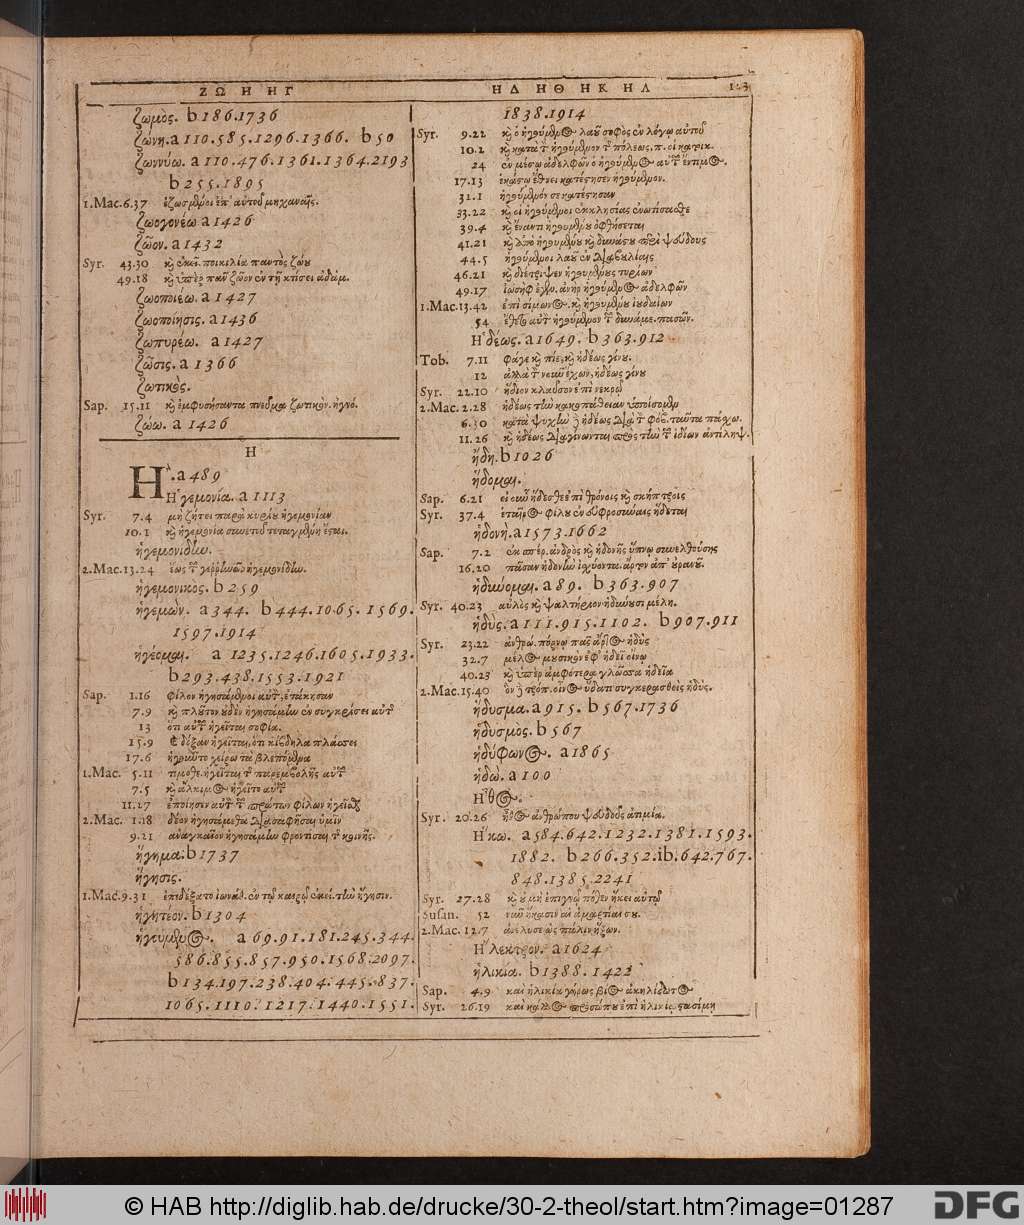 ΖΩ Η ΗΓ
ζωμὸς. b 186.1736
ζώνη. a 110.585.1296.1366. b 50
ζωννύω. a 110.476.1361.1364.2193
b 255.1895
1.Mac. 6.37 ἐζωσμένοι ἐπ' αὐτοῦ μηχαναῖς.
ζωογονέω a 1426
ζῶον. a 1432
Syr. 43.30 ποικιλία παντὸς ζώου
49.18 καὶ ὑπὲρ πᾶν ζῶον ἐν τῇ κτίσει ἀδάμ.
ζωοποιέω. a 1427
ζωοποίησις. a 1436
ζωπυρέω. a 1427
ζῶσις. a 1366
ζωτικὸς.
Sap. 15.11 καὶ ἐμφυσήσαντα πνεῦμα ζωτικὸν.
ζώω. a 1426
Η
Ἢ. a 489
Ἡγεμονία. a 1113
Syr. 7.4 μὴ ζήτει παρὰ κυρίου ἡγεμονίαν
10.1 καὶ ἡγεμονία συνετοῦ τεταγμένη ἔσται.
ἡγεμονιδίω.
2.Mac. 13.24 ἕως
ἡγεμονικὸς. b 259
ἡγεμὼν. a 344. b 444.1065.1569.
1597.1914
ἡγέομαι. a 1235.1246.1605.1933.
b 293.438.1553.1921
Sap. 1.16 φίλον ἡγησάμενοι αὐτὸν, ἐτάκησαν
7.9 καὶ πλοῦτον οὐδὲν ἡγησάμην ἐν συγκρίσει αὐτῆς
13 ὅτι αὐτῶν ἡγεῖται σοφία.
15.9 δόξαν ἡγεῖται, ὅτι κίβδηλα πλάσσει
17.6 ἡγοῦντο χείρω τὰ βλεπόμενα
1.Mac. 5.11 τιμόθε. ἡγεῖται τῆς παρεμβολῆς αὐτῶν
7.5 καὶ ἄλκιμος ἡγεῖτο αὐτῶν
11.27 ἐποίησεν αὐτὸν τῶν πρώτων φίλων ἡγεῖσθαι
2.Mac. 1.18 δέον ἡγησάμεθα διασαφῆσαι ὑμῖν
9.21 ἀναγκαῖον ἡγησάμην φροντίσαι τῆς κοινῆς.
ἥγημα. b 1737
ἥγησις.
1.Mac. 9.31 ἐπεδέξατο ἰωνάθ. ἐν τῷ καιρῷ ἐκεί. τὴν ἥγησιν.
ἡγητέον. b 1304
ἡγούμενος. a 69.91.181.245.344.
586.855.857.950.1568.2097.
b 134.197.238.404.445.837.
1065.1110.1217.1440.1551.
ΗΔ ΗΘ ΗΚ ΗΛ
1838.1914
Syr. 9.22 καὶ ὁ ἡγούμενος λαοῦ σοφὸς ἐν λόγῳ αὐτοῦ
10.2 καὶ κατὰ τὸν ἡγούμενον τῆς πόλεως, π. οἱ κατοικ.
24 ἐν μέσῳ ἀδελφῶν ὁ ἡγούμενος αὐτῶν ἔντιμος.
17.13 ἑκάστῳ ἔθνει κατέστησεν ἡγούμενον.
31.1 ἡγούμενόν σε κατέστησαν
33.22 καὶ οἱ ἡγούμενοι ἐκκλησίας ἐνωτίσασθε
39.4 καὶ ἔναντι ἡγουμένου ὀφθήσεται
41.21 καὶ ἀπὸ ἡγουμένου καὶ δυνάστου περὶ ψεύδους
44.5 ἡγούμενοι λαοῦ ἐν διαβουλίαις
46.21 καὶ ἐξέτριψεν ἡγουμένους τυρίων
49.17 ἰωσὴφ ἐγέν. ἀνὴρ ἡγούμενος ἀδελφῶν
1.Mac. 13.42 ἐπὶ σίμωνος, καὶ ἡγουμένου ἰουδαίων
54 ἔθετο αὐτὸν ἡγούμενον τῶν δυνάμε. πασῶν.
Ἡδέως. a 1649. b 363.912
Tob. 7.11 φάγε καὶ πίε, καὶ ἡδέως γίνου.
12 ἀλλὰ τὸ νεανῶν ἔχων, ἡδέως γίνου
Syr. 22.10 ἥδιον κλαῦσον ἐπὶ νεκρῷ
2.Mac. 2.28 ἡδέως τὴν κακοπάθειαν ὑποίσομεν
6.30 κατὰ ψυχὴν δὲ ἡδέως διὰ τὸν φόβ. ταῦτα πάσχω.
11.26 καὶ ἡδέως διαγίνωνται πρὸς τὴν τῶν ἰδίων ἀντίληψ.
ἤδη. b 1026
ἥδομαι.
Sap. 6.21 εἰ οὖν ἥδεσθε ἐπὶ θρόνοις καὶ σκήπτροις
Syr. 37.4 ἑταῖρος φίλου ἐν εὐφροσύναις ἥδεται
ἡδονὴ. a 1573.1662
Sap. 7.2 ἐκ σπέρ. ἀνδρὸς καὶ ἡδονῆς ὕπνῳ συνελθούσης
16.20 πᾶσαν ἡδονὴν ἰσχύοντα. ἄρτον ἀπ' οὐρανοῦ.
ἡδύνομαι. a 89. b 363.907
Syr. 40.23 αὐλὸς καὶ ψαλτήριον ἡδύνουσι μέλη.
ἡδὺς. a 111.915.1102. b 907.911
Syr. 23.22 ἀνθρώ. πόρνῳ πᾶς ἄρτος ἡδὺς
32.7 μέλος μουσικῶν ἐφ' ἡδεῖ οἴνῳ
40.23 καὶ ὑπὲρ ἀμφότερα γλῶσσα ἡδεῖα
2.Mac. 15.40 ὃν δὲ τρόπ. οἶνος ὕδατι συγκερασθεὶς ἡδὺς.
ἥδυσμα. a 915. b 567.1736
ἡδυσμὸς. b 567
ἡδύφωνος. a 1865
ἡδὼ. a 100
Ἦθος.
Syr. 20.26 ἦθος ἀνθρώπου ψευδοῦς ἀτιμία.
Ἥκω. a 584.642.1232.1381.1593.
1882. b 266.352. ib. 642.767.
848.1385.2241
Syr. 27.28 καὶ οὐ μὴ ἐπιγνῷ πόθεν ἥκει αὐτῷ
Susan. 52 νῦν ἥκασιν αἱ ἁμαρτίαι σου.
2.Mac. 12.7 ἀνέλυσε ὡς πάλιν ἥξων.
Ἤλεκτρον. a 1624
ἡλικία. b 1388.1422
Sap. 4.9 καὶ ἡλικία γήρως βίος ἀκηλίδωτος
Syr. 26.19 καὶ κάλλος προσώπου ἐπὶ ἡλικίᾳ στασίμῃ
© HAB http://diglib.hab.de/drucke/30-2-theol/start.htm?image=01287
DFG